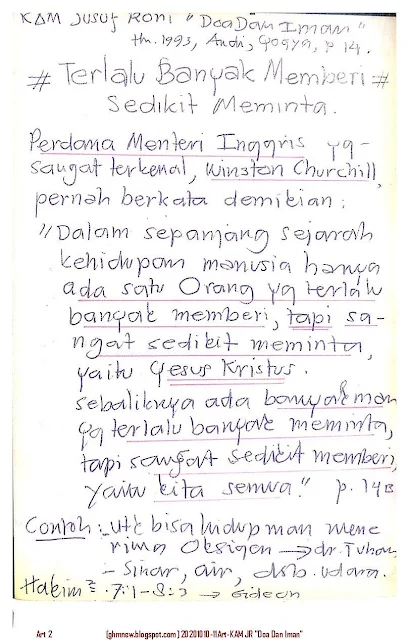 KAM Jusuf Roni "Doa Dan Iman"
th. 1993, Andi, Yogya, p 14.
# Terlalu Banyak Memberi #
Sedikit Meminta.
Perdana Menteri Inggris yg
sangat terkenal, Winston Churchill,
pernah berkata demikian :
"Dalam sepanjang sejarah
kehidupan manusia hanya
ada satu Orang yg terlalu
banyak memberi, tapi sa-
ngat sedikit meminta,
yaitu Yesus Kristus.
sebaliknya ada banyak man
yg terlalu banyak meminta,
tapi sangat sedikit memberi,
yaitu kita semua." p. 14B
Contoh : utk bisa hidup man mene
rima Oksigen → dr. Tuhan
- Sinar, air, dsb. udara.
Hakim² 7:1-8:3 → Gideon
Art 2 [ghmnew.blogspot.com] 20201010-11Art-KAM JR "Doa Dan Iman"